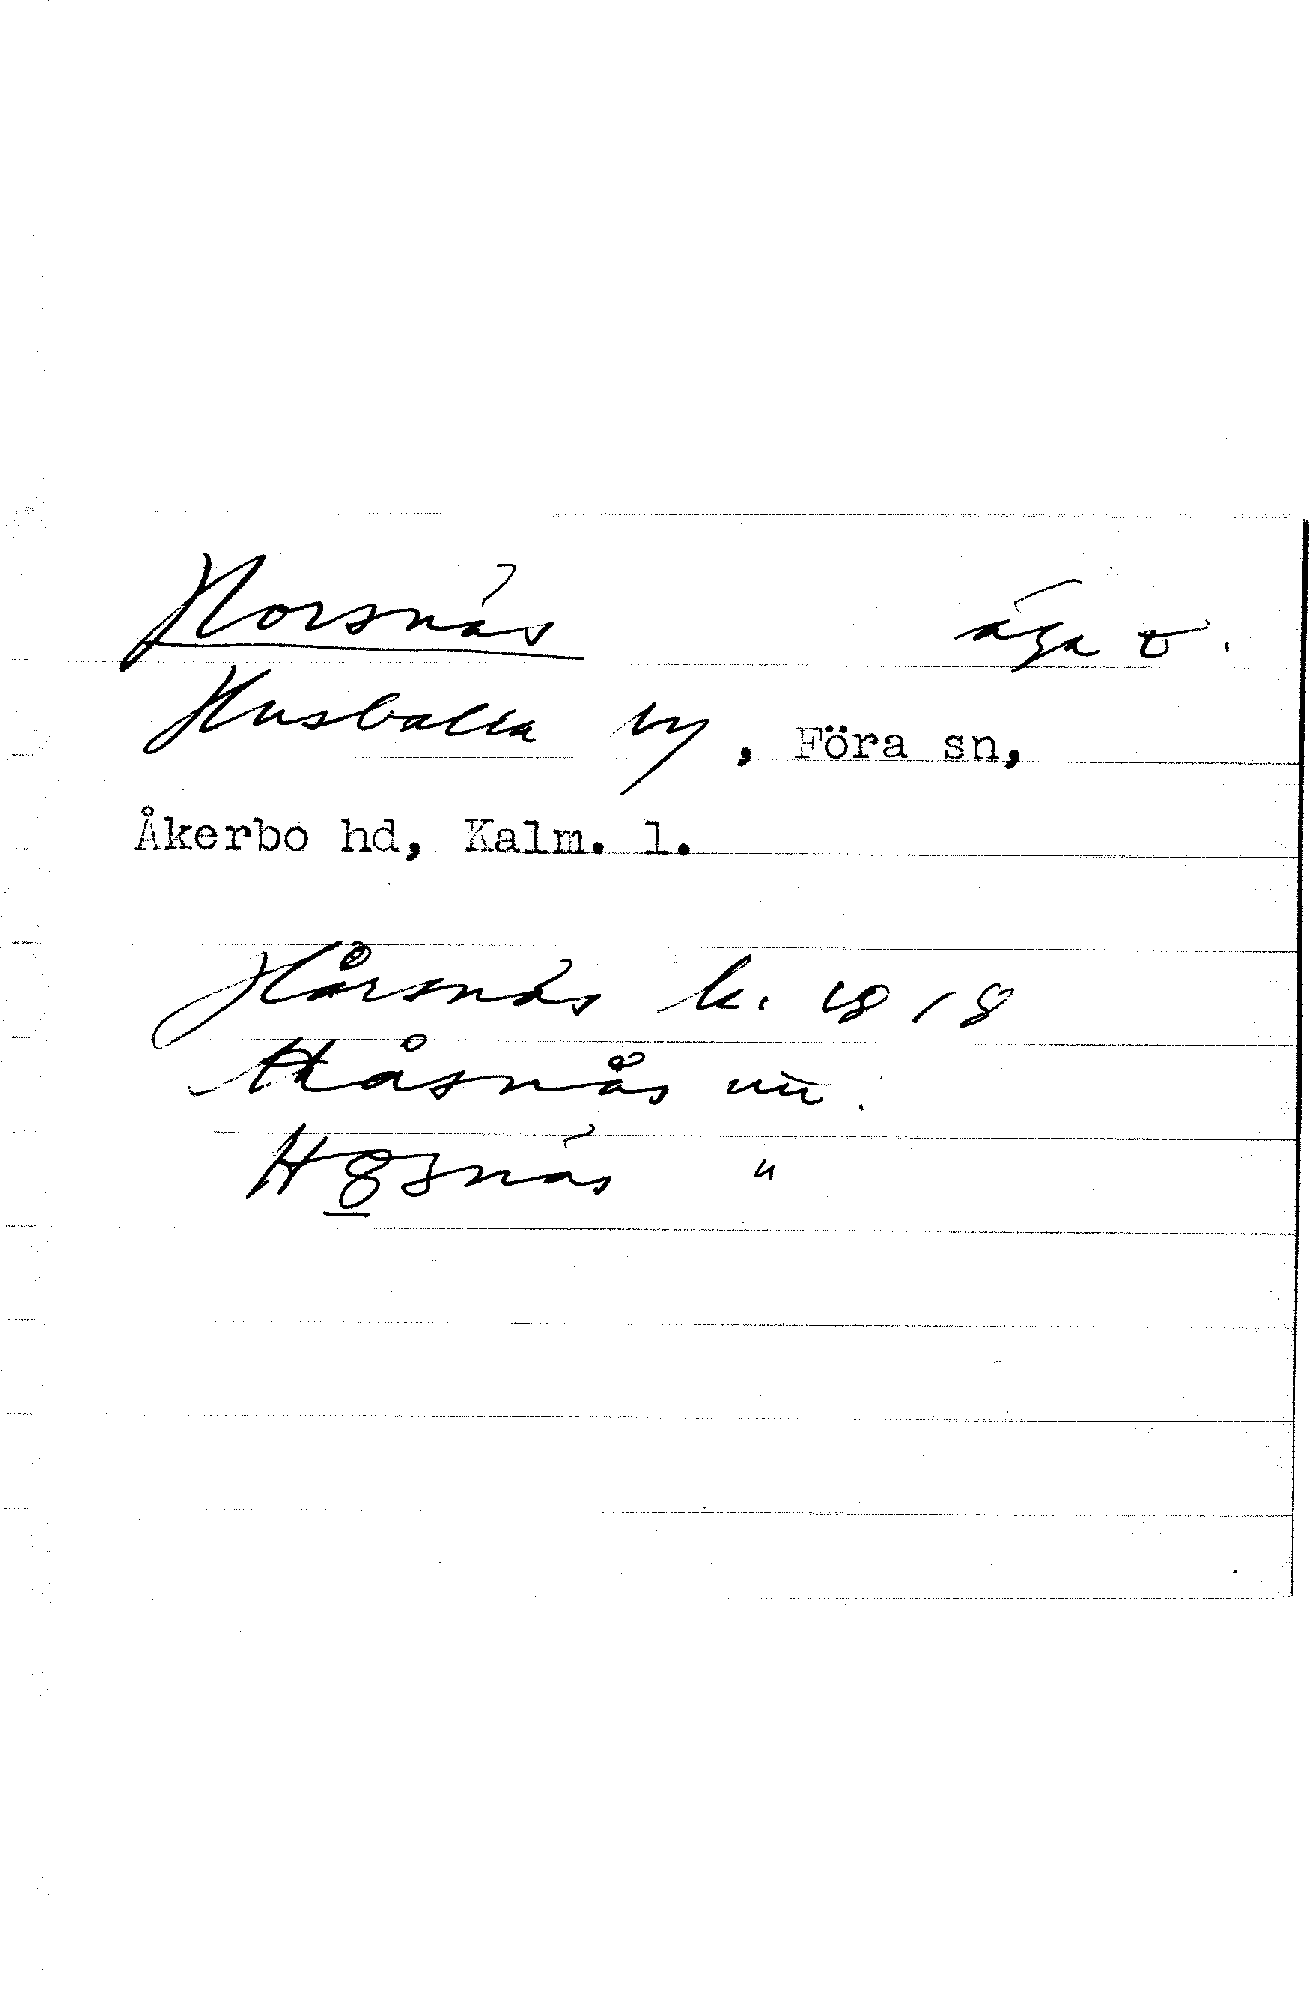 Horsnäs äga o.
Husvalla by, Föra sn,
Åkerbo hd, Kalm. l.
Hårsnäs k. 1818
Håsnås uu.
H8snäs "